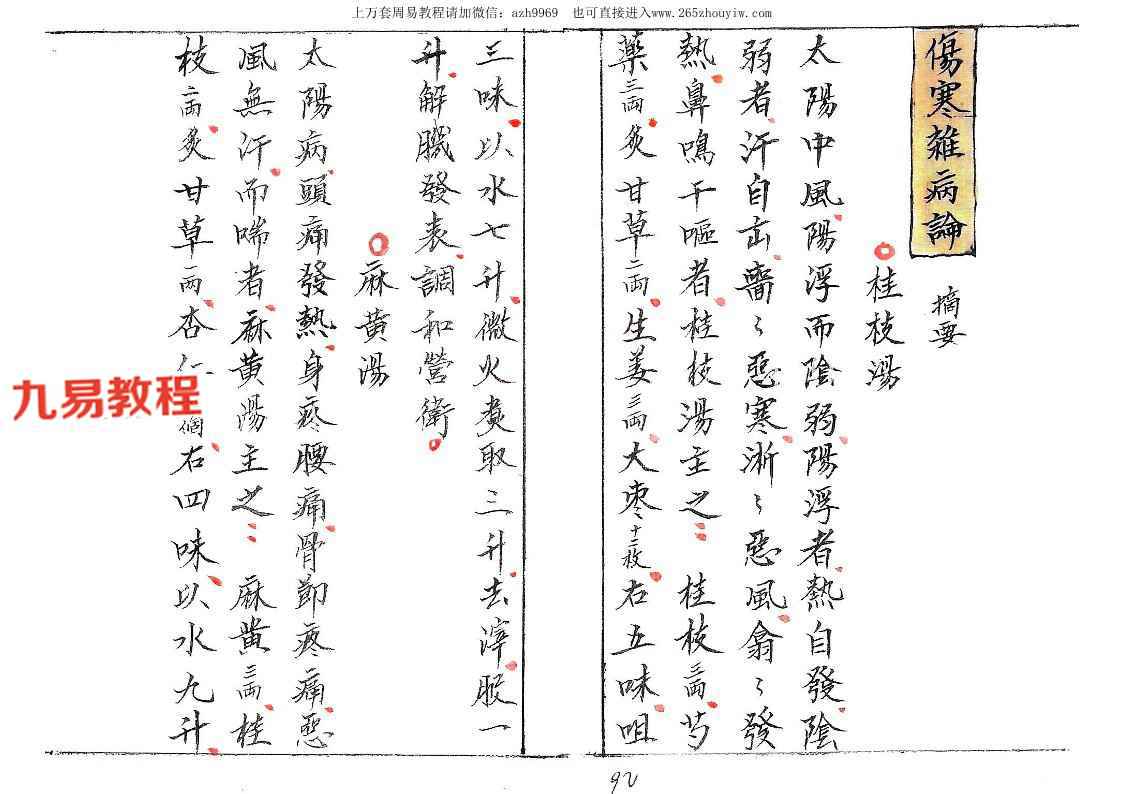 上万套周易教程请加微信：azh9969 也可直接进入www.265zhouyiw.com
傷寒雜病論 摘要
桂枝湯
太陽中風陽浮而陰弱陽浮者熱自發陰
弱者汗自出嗇〻惡寒淅〻惡風翕〻發
熱鼻鳴干嘔者桂枝湯主之 桂枝三兩芍
藥三兩炙甘草二兩生姜三兩大棗十二枚右五味咀
三味以水七升微火煑取三升去滓服一
升解職發表調和營衛
麻黄湯
太陽病頭痛發熱身疼腰痛骨節疼痛惡
風無汗而喘者麻黄湯主之 麻黄三兩桂
枝二兩炙甘草一兩杏仁個右四味以水九升
九易教程
92